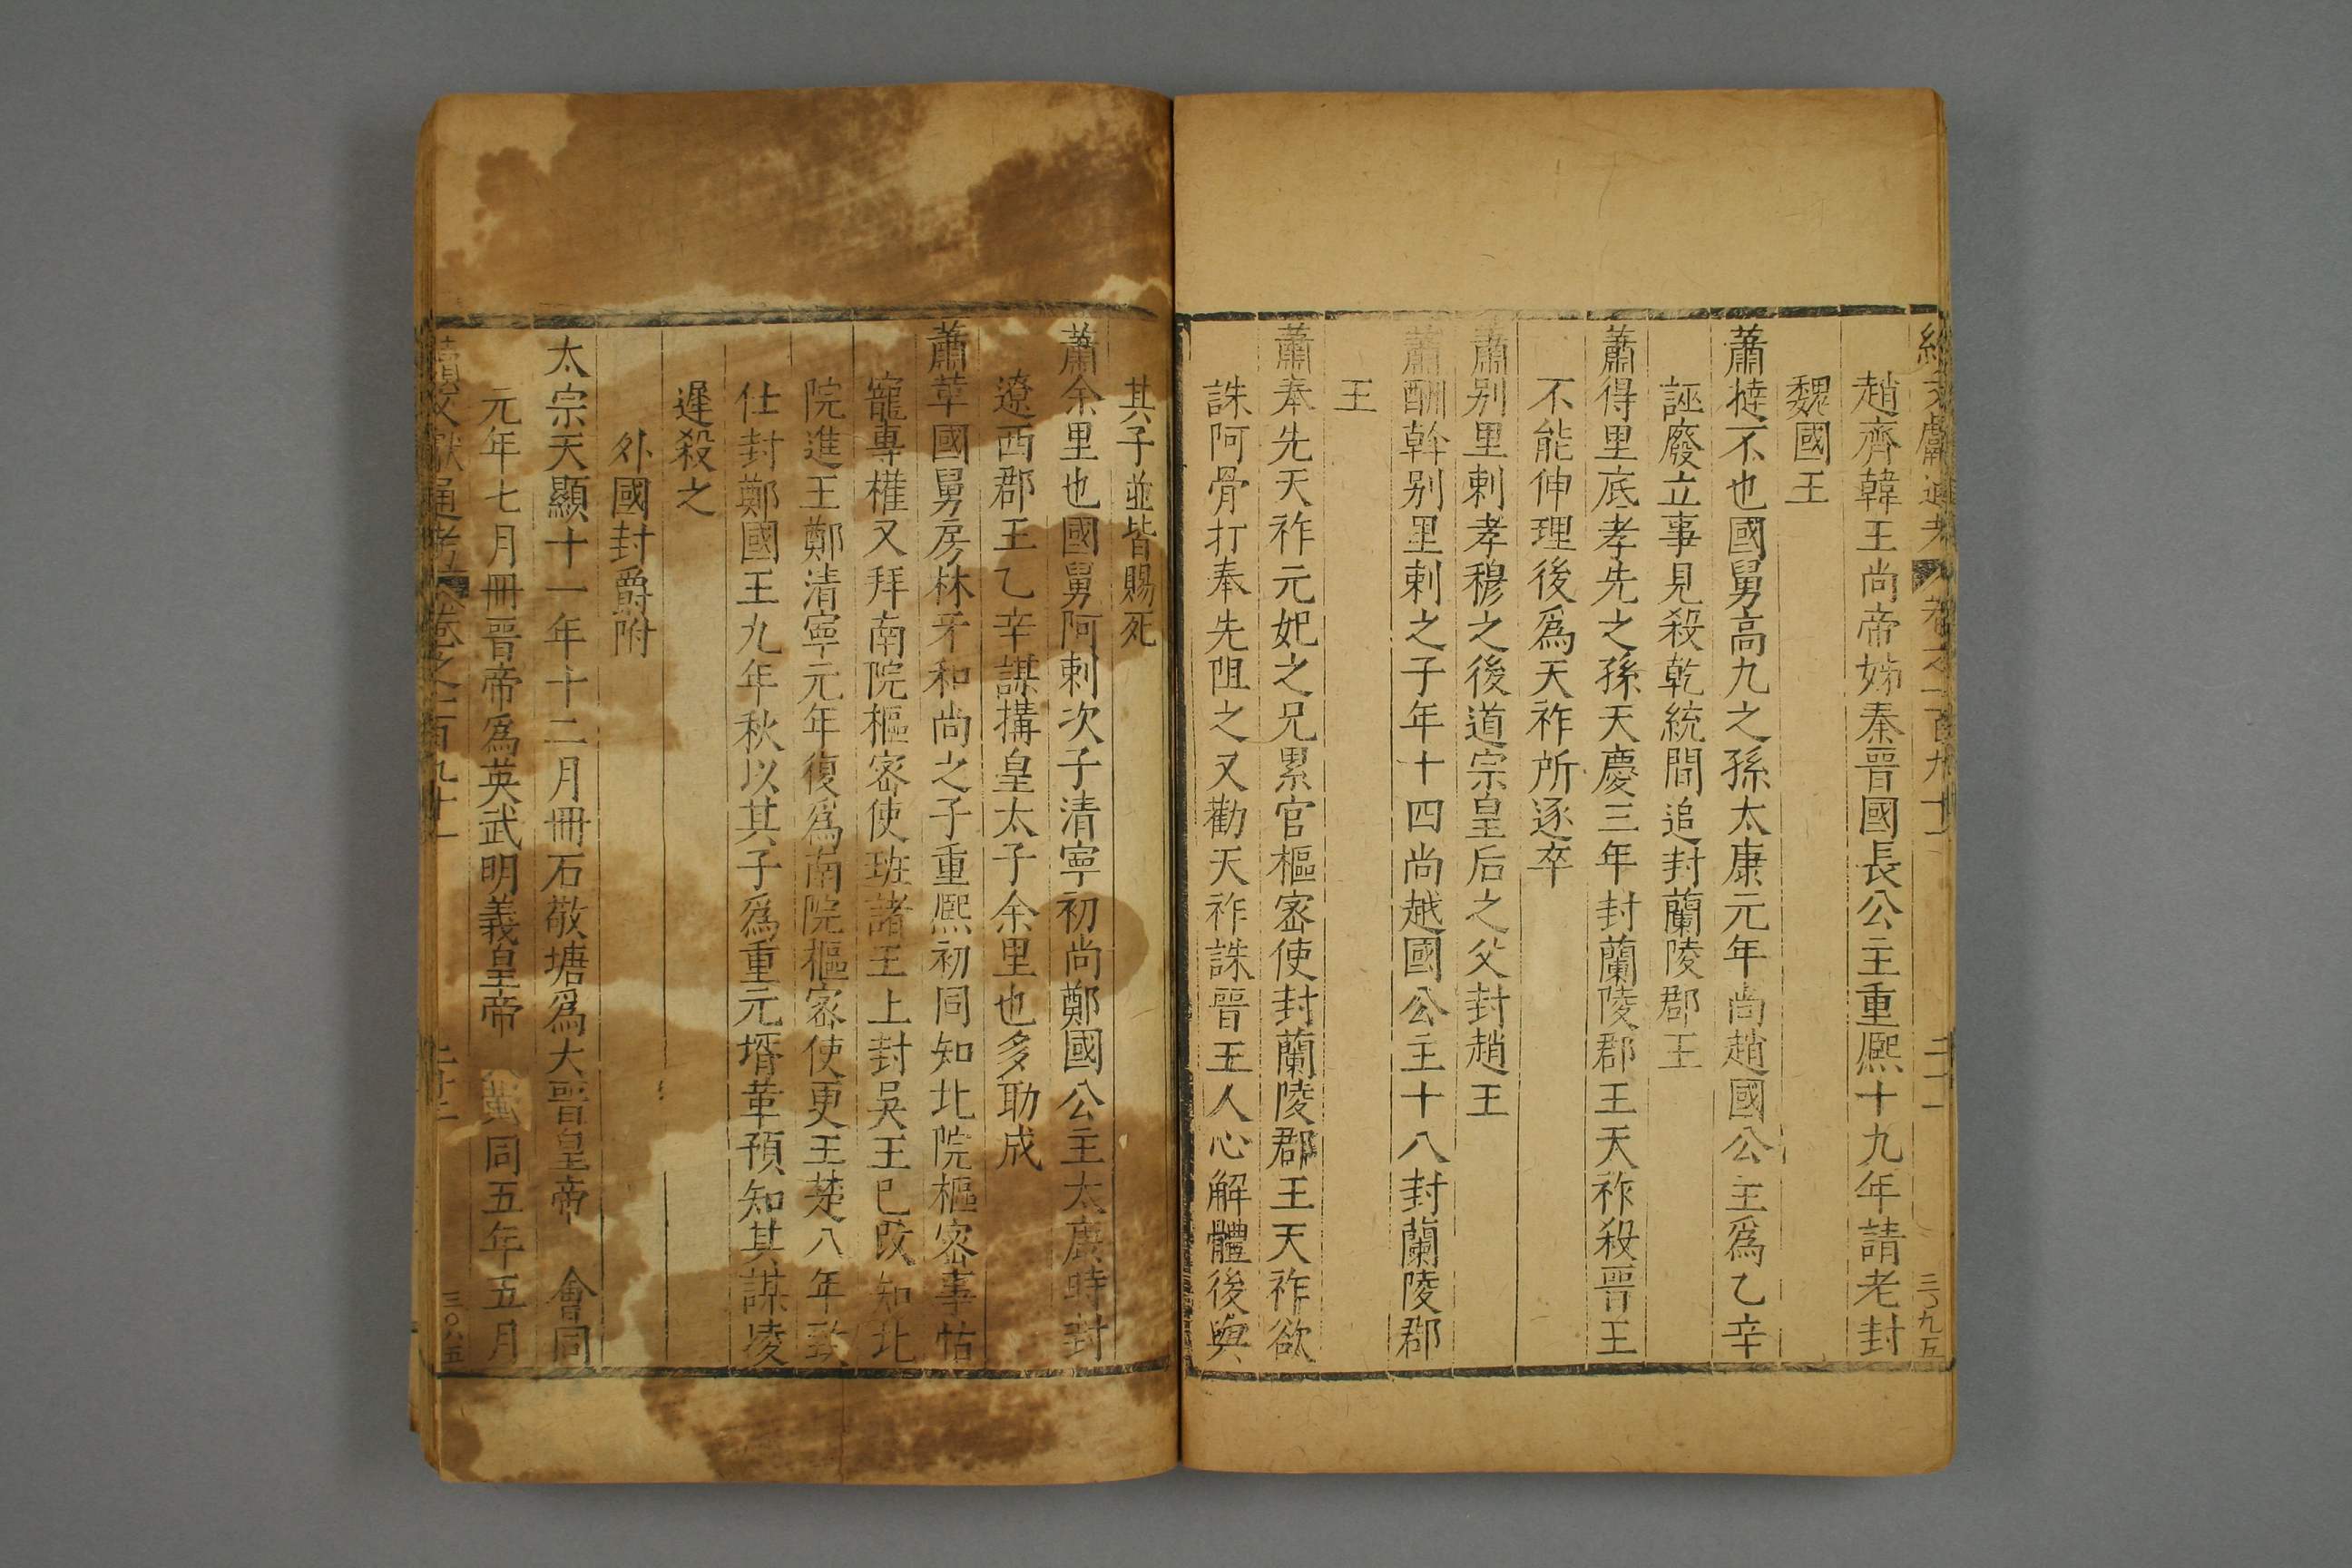 趙齊韓王尚帝姊秦晉國長公主重熈十九年請老封
魏國王
蕭撻不也國舅髙九之孫太康元年尚趙國公主爲乙辛
誣廢立事見殺乾統間追封蘭陵郡王
蕭得里底孝先之孫天慶三年封蘭陵郡王天祚殺晉王
不能伸理後爲天祚所逐卒
蕭别里剌孝穆之後道宗皇后之父封趙王
蕭酬斡别里剌之子年十四尚越國公主十八封蘭陵郡
王
蕭奉先天祚元妃之兄累官樞密使封蘭陵郡王天祚欲
誅阿骨打奉先阻之又勸天祚誅晉王人心解體後與
其子並皆賜死
蕭余里也國舅阿剌次子清寧初尚鄭國公主太康時封
遼西郡王乙辛謀搆皇太子余里也多助成
蕭革國舅房林牙和尚之子重熈初同知北院樞密事怙
寵專權又拜南院樞密使班諸王上封吳王已改知北
院進王鄭清寧元年復爲南院樞密使更王楚八年致
仕封鄭國王九年秋以其子爲重元壻革預知其謀凌
遲殺之
外國封爵附
太宗天顯十一年十二月冊石敬塘爲大晉皇帝 會同
元年七月冊晉帝爲英武明義皇帝 同五年五月
續文獻通考 卷之一百九十一 二十二 三〇八五